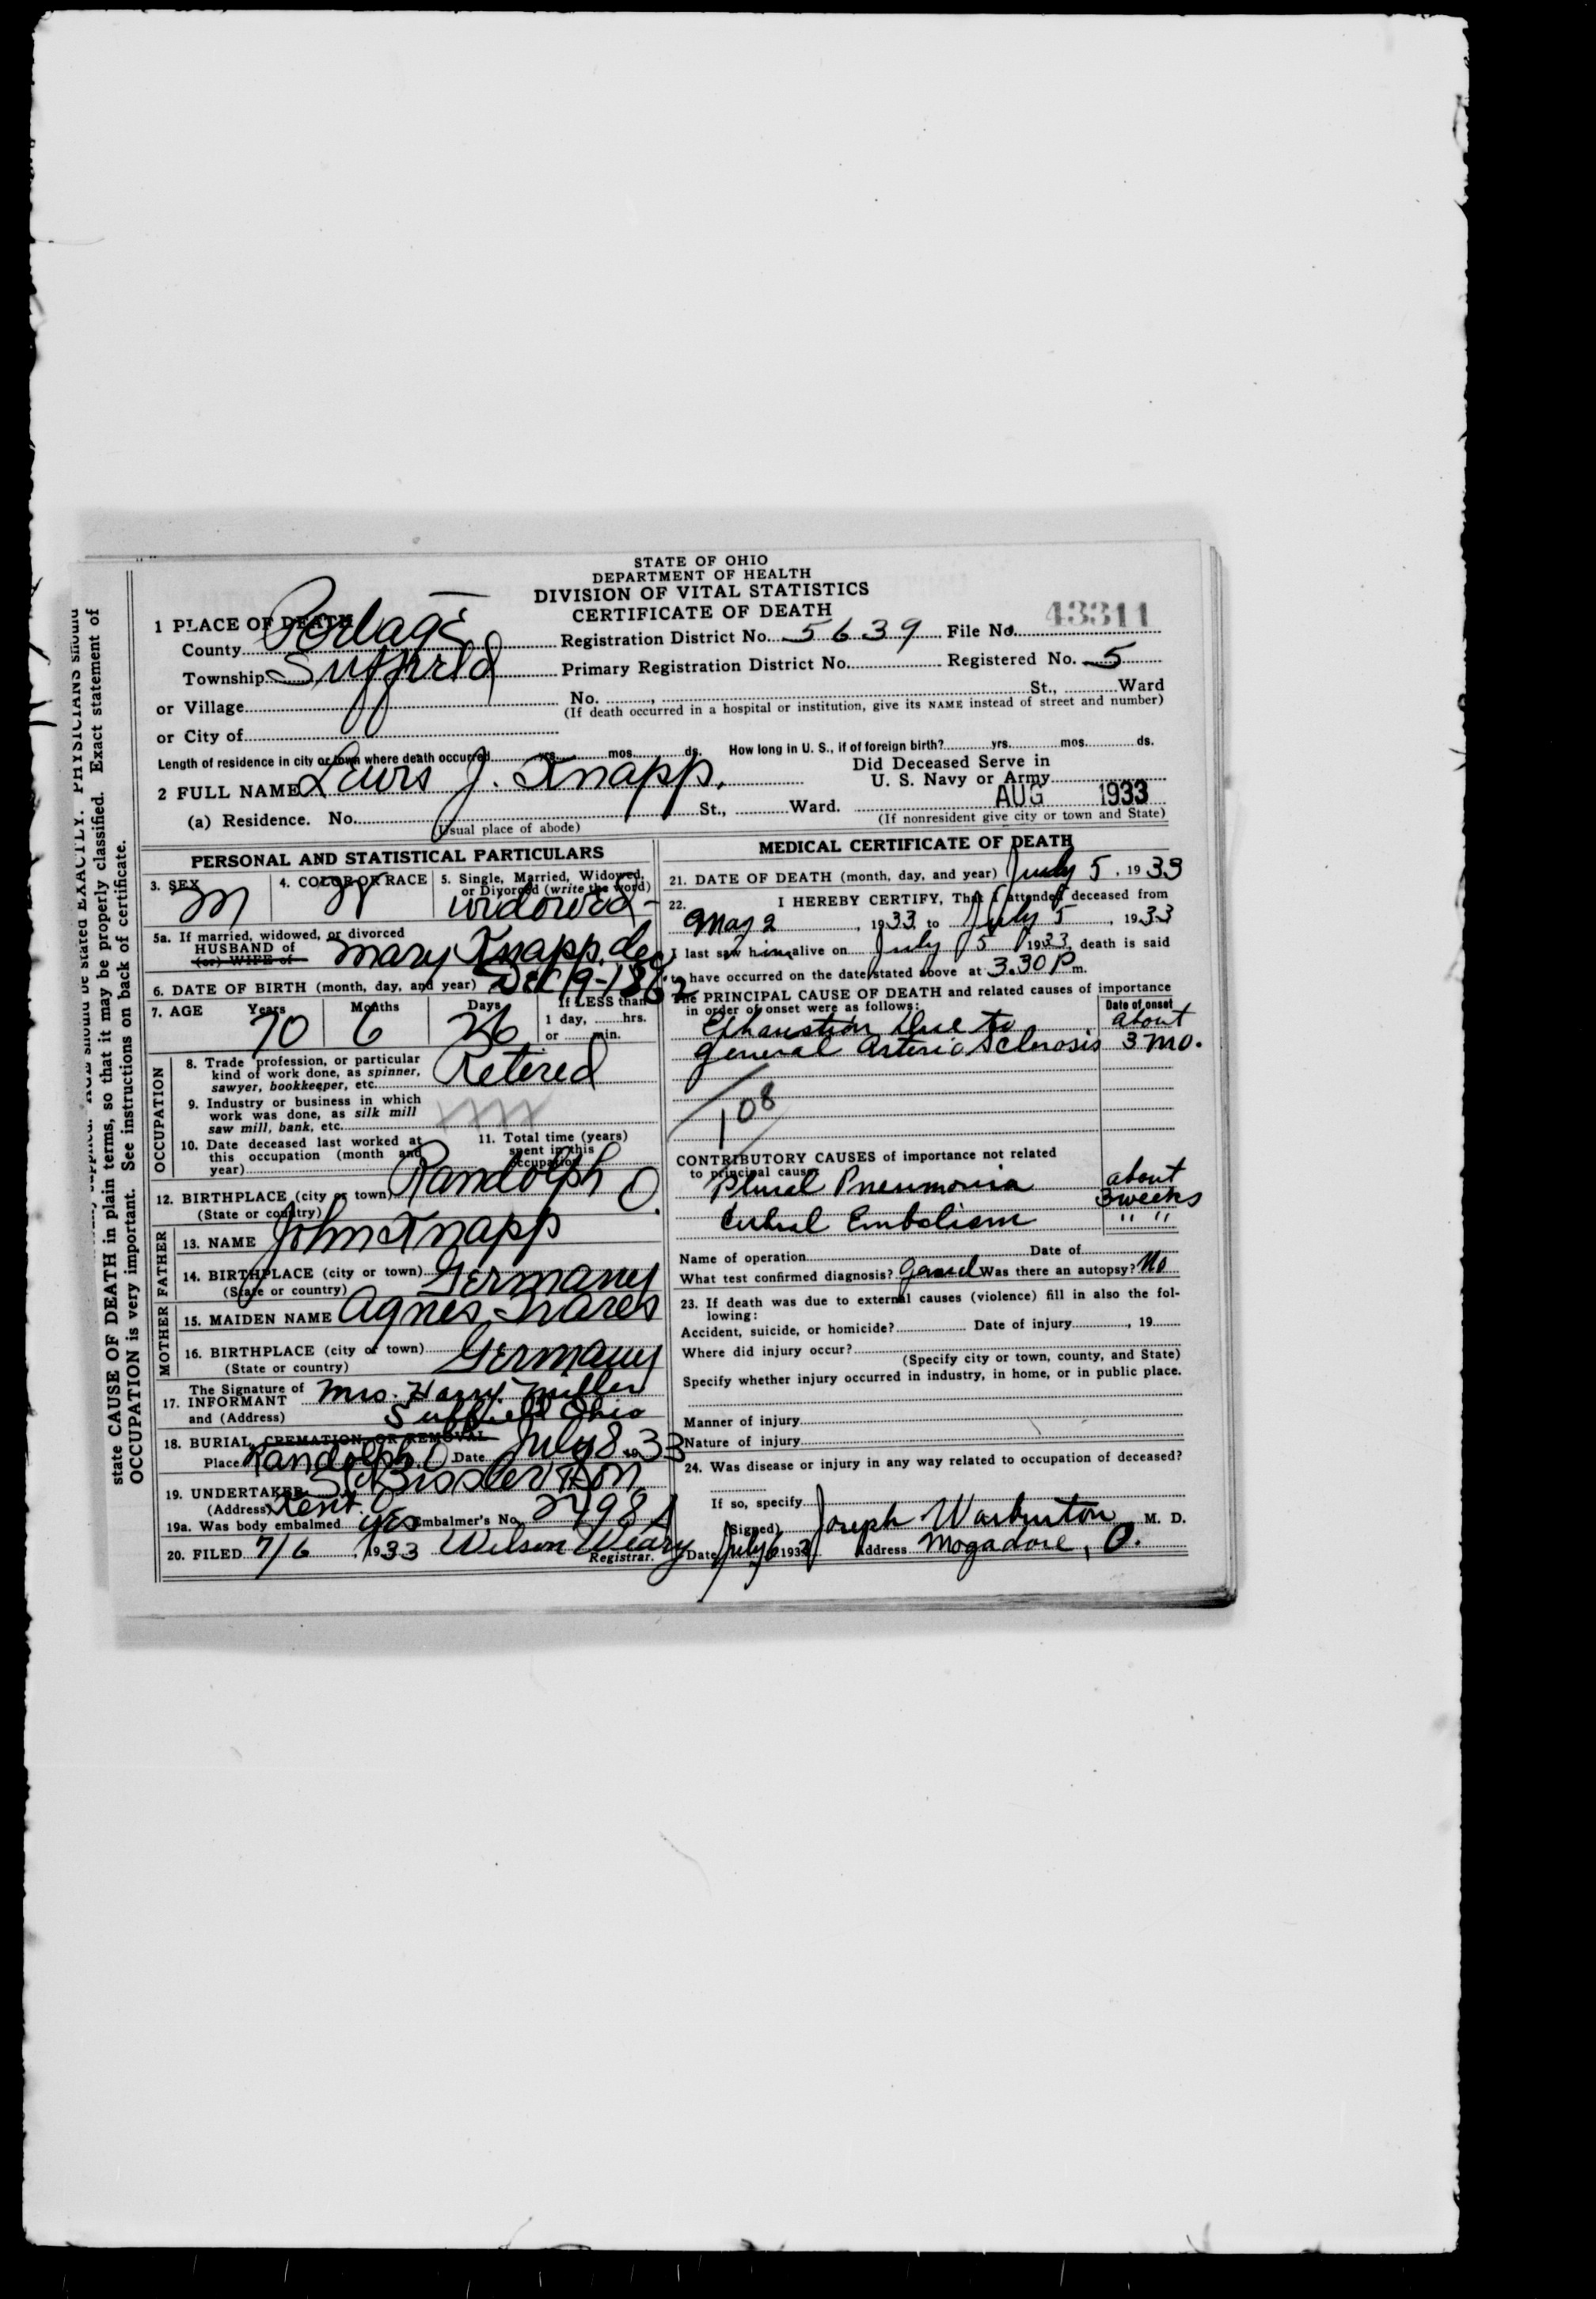 STATE OF OHIO
DEPARTMENT OF HEALTH
DIVISION OF VITAL STATISTICS
CERTIFICATE OF DEATH
43311
1 PLACE OF DEATH
County Portage Registration District No. 5639 File No.
Township Suffield Primary Registration District No. Registered No. 5
or Village No. , St., Ward
(If death occurred in a hospital or institution, give its NAME instead of street and number)
or City of
Length of residence in city or town where death occurred yrs. mos. ds. How long in U. S., if of foreign birth? yrs. mos. ds.
2 FULL NAME Lewis J. Knapp. Did Deceased Serve in
U. S. Navy or Army
AUG 1933
(a) Residence. No. St., Ward.
(Usual place of abode) (If nonresident give city or town and State)
PERSONAL AND STATISTICAL PARTICULARS
3. SEX 4. COLOR OR RACE 5. Single, Married, Widowed,
or Divorced (write the word)
M W widowed
5a. If married, widowed, or divorced
HUSBAND of
(or) WIFE of
Mary Knapp, dec
6. DATE OF BIRTH (month, day, and year) Dec 9-1862
7. AGE Years Months Days If LESS than
70 6 26 1 day, hrs.
or min.
OCCUPATION
8. Trade profession, or particular
kind of work done, as spinner,
sawyer, bookkeeper, etc. Retired
9. Industry or business in which
work was done, as silk mill
saw mill, bank, etc.
10. Date deceased last worked at
this occupation (month and
year)
11. Total time (years)
spent in this
occupation
12. BIRTHPLACE (city or town) Randolph O.
(State or country)
FATHER
13. NAME John Knapp
14. BIRTHPLACE (city or town) Germany
(State or country)
MOTHER
15. MAIDEN NAME Agnes
16. BIRTHPLACE (city or town) Germany
(State or country)
The Signature of Mrs. Harry Miller
17. INFORMANT
and (Address) Suffield Ohio
18. BURIAL, CREMATION, OR REMOVAL
Place Randolph O Date July 8 1933
19. UNDERTAKER Bissler & Son
(Address) Kent. O
19a. Was body embalmed yes Embalmer's No. 2498 A
20. FILED 7/6, 1933 Wilson Weary
Registrar.
MEDICAL CERTIFICATE OF DEATH
21. DATE OF DEATH (month, day, and year) July 5, 1933
22. I HEREBY CERTIFY, That I attended deceased from
May 2, 1933, to July 5, 1933
I last saw him alive on July 5 1933, death is said
to have occurred on the date stated above at 3.30 P m.
The PRINCIPAL CAUSE OF DEATH and related causes of importance
in order of onset were as follows: Date of onset
Exhaustion due to about
general Arterio Sclerosis 3 mo.
108
CONTRIBUTORY CAUSES of importance not related
to principal cause:
Plural Pneumonia about
3 weeks
Cerbral Embolism " "
Name of operation Date of
What test confirmed diagnosis? Was there an autopsy? No
23. If death was due to external causes (violence) fill in also the fol-
lowing:
Accident, suicide, or homicide? Date of injury , 19
Where did injury occur?
(Specify city or town, county, and State)
Specify whether injury occurred in industry, in home, or in public place.
Manner of injury
Nature of injury
24. Was disease or injury in any way related to occupation of deceased?
If so, specify
(Signed) Joseph Warburton M. D.
Date July 6 1933 Address Mogadore, O.
AGE should be stated EXACTLY. PHYSICIANS should
state CAUSE OF DEATH in plain terms, so that it may be properly classified. Exact statement of
OCCUPATION is very important. See instructions on back of certificate.